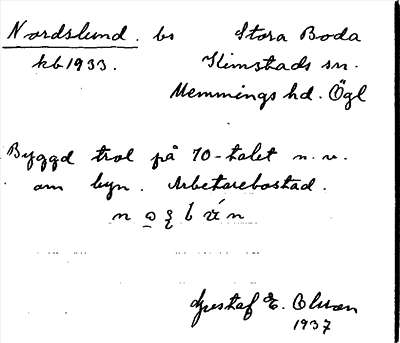 Nordslund. bs Stora Boda
kb 1933. Kimstads sn.
Memmings hd. Ögl
Byggd trol på 70-talet n.v.
om byn. Arbetarebostad.
Gustaf E. Olsson
1937